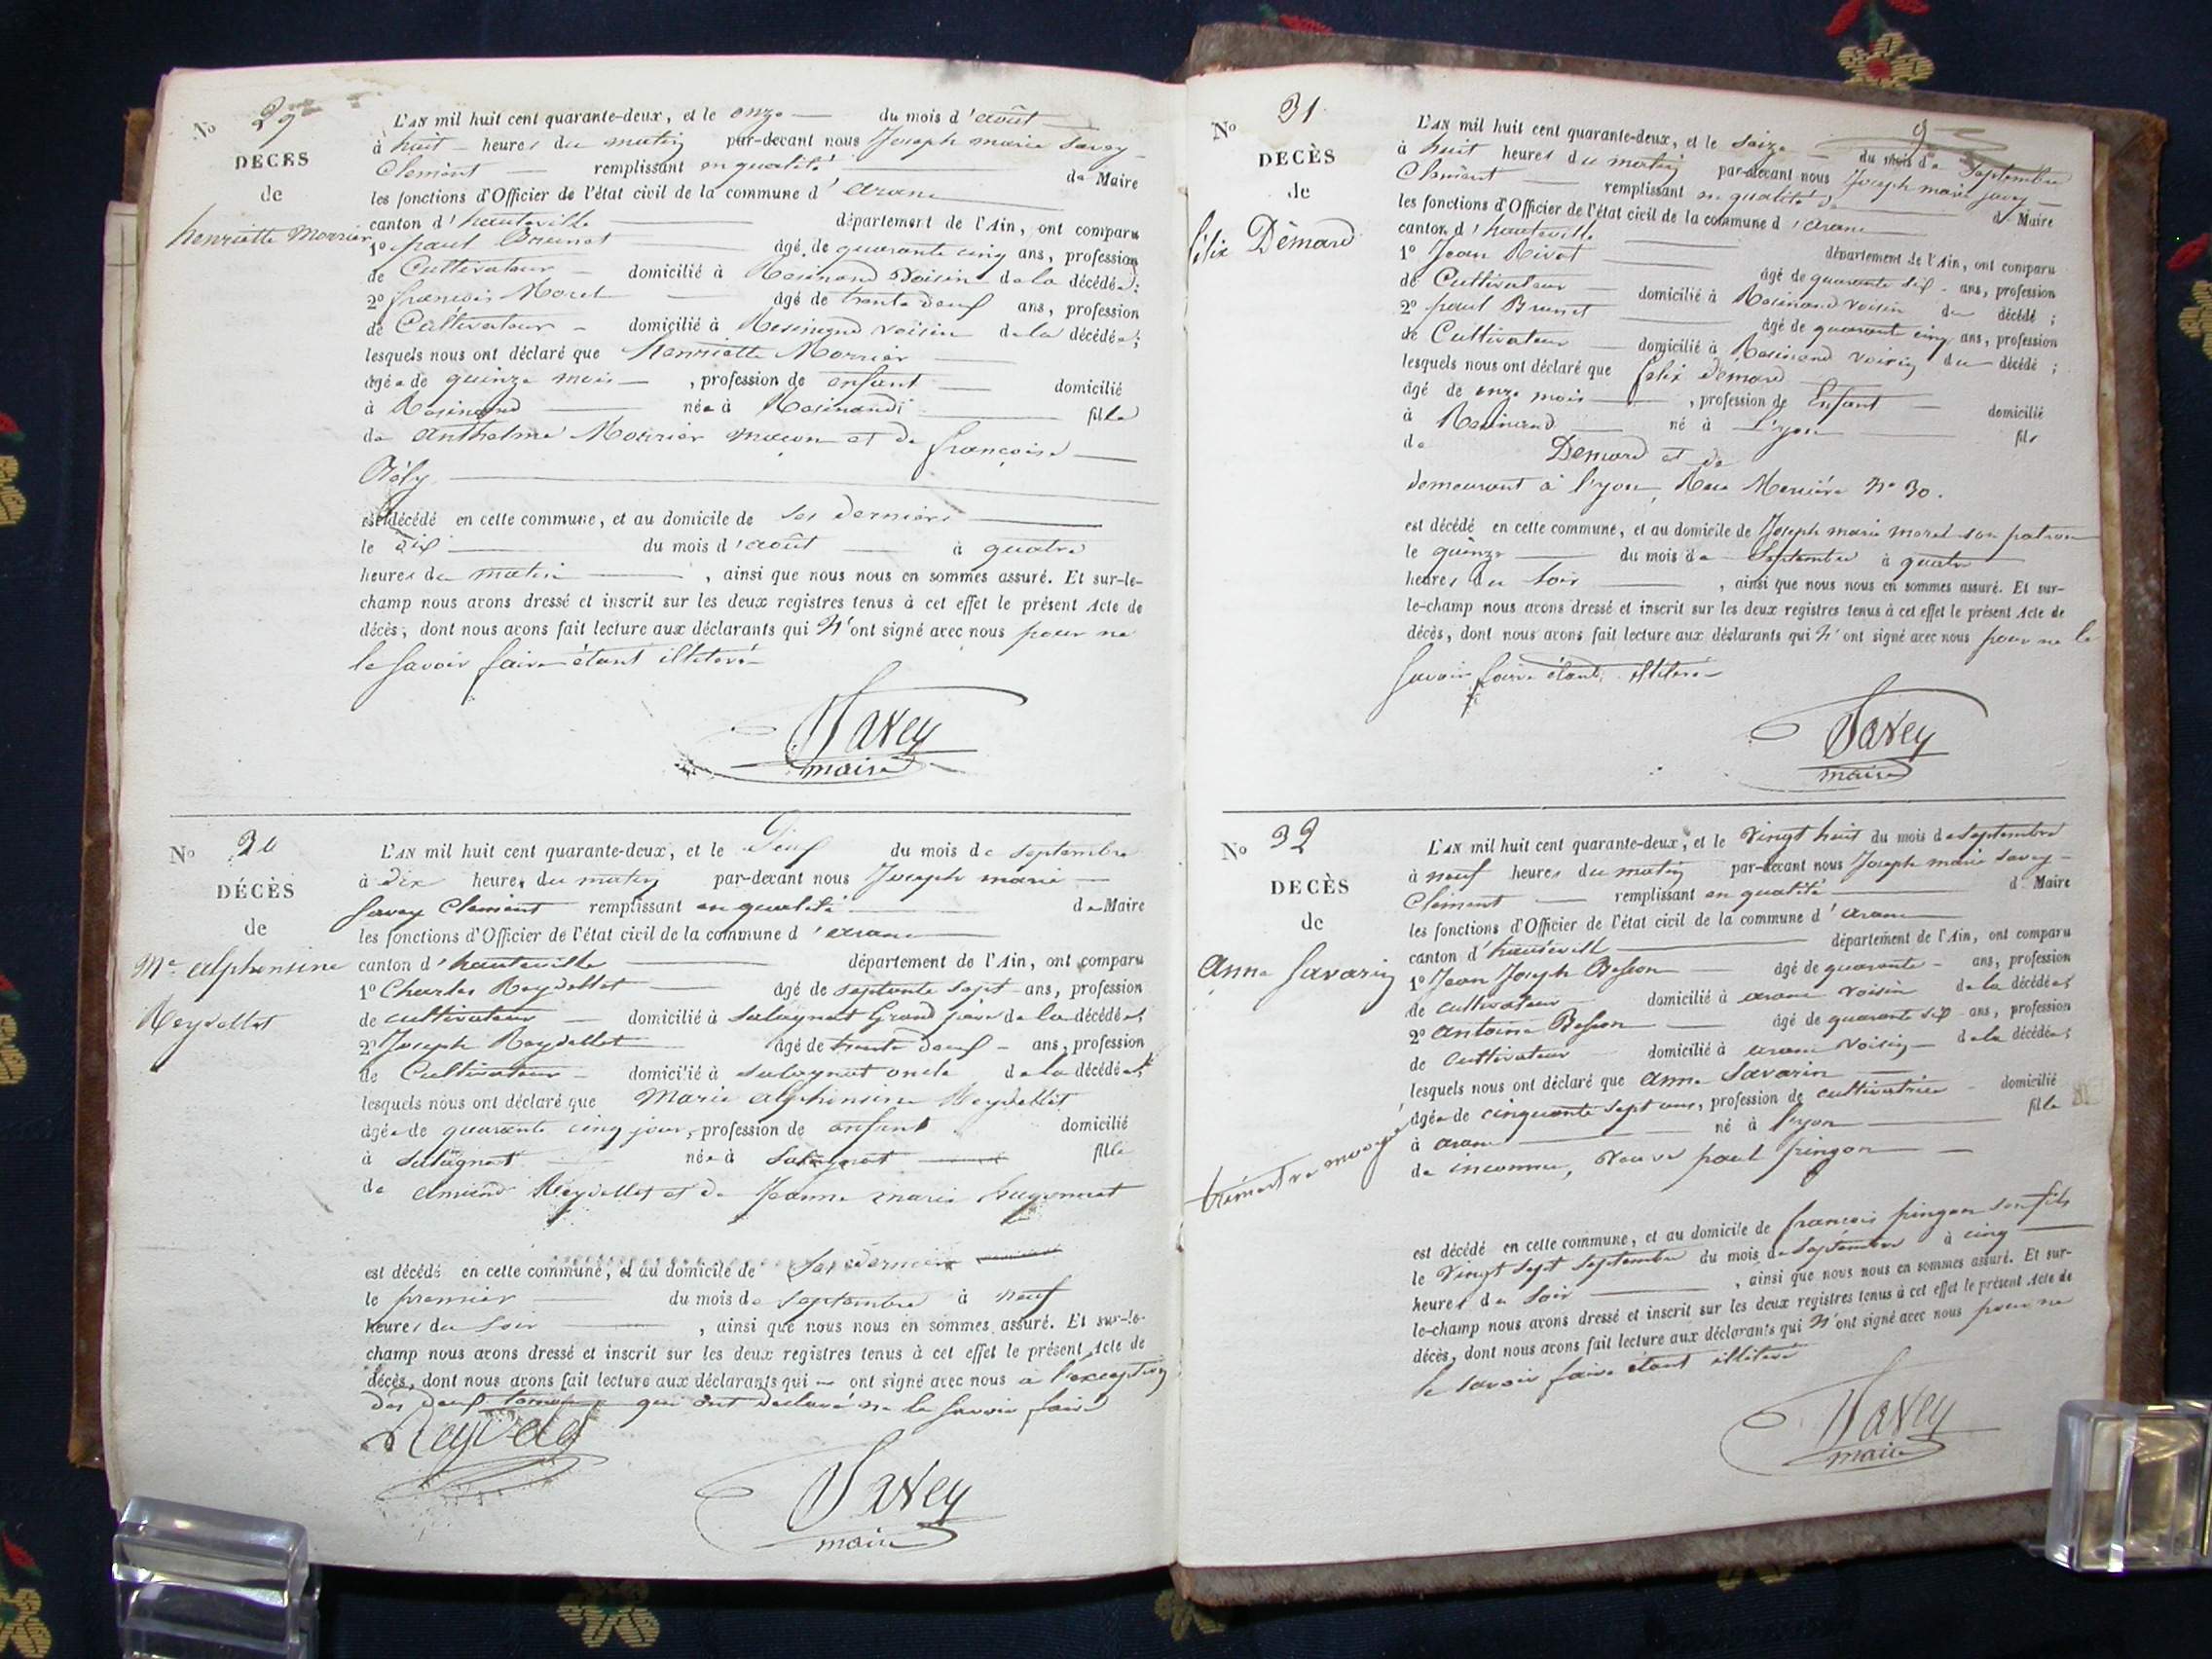 No 29
DECÈS
de
henriette Morrier
L'AN mil huit cent quarante-deux, et le onze du mois d'août
à huit heures du matin par-devant nous Joseph marie Savey
Clement remplissant en qualité de Maire
les fonctions d'Officier de l'état civil de la commune d'arane
canton d'hauteville département de l'Ain, ont comparu
1o paul Brunet âgé de quarante cinq ans, profession
de Cultivateur domicilié à Rosinand Voisin de la décédée;
2o françois Morel âgé de trente deux ans, profession
de Cultivateur domicilié à Resinand voisin de la décédée;
lesquels nous ont déclaré que henriette Morrier
âgée de quinze mois, profession de enfant domicilié
à Rosinand née à Rosinand fille
de anthelme Morrier maçon et de françoise
est décédé en cette commune, et au domicile de ses derniers
le dix du mois d'août à quatre
heures du matin, ainsi que nous nous en sommes assuré. Et sur-le-
champ nous avons dressé et inscrit sur les deux registres tenus à cet effet le présent Acte de
décès, dont nous avons fait lecture aux déclarants qui n'ont signé avec nous pour ne
le savoir faire étant illiteré
Savey
maire
No 30
DÉCÈS
de
Me alphonsine
Reydellet
L'AN mil huit cent quarante-deux, et le Deux du mois de septembre
à dix heures du matin par-devant nous Joseph marie
Savey Clement remplissant en qualité de Maire
les fonctions d'Officier de l'état civil de la commune d'arane
canton d'hauteville département de l'Ain, ont comparu
1o Charles Reydellet âgé de septante sept ans, profession
de cultivateur domicilié à salagnat Grand père de la décédée;
2o Joseph Reydellet âgé de trente deux ans, profession
de Cultivateur domicilié à salagnat oncle de la décédée;
lesquels nous ont déclaré que Marie alphonsine Reydellet
âgée de quarante cinq jour, profession de enfant domicilié
à salagnat née à salagnat fille
de Reydellet et de Jeanne marie hugonnet
est décédé en cette commune, et au domicile de ses derniers
le premier du mois de septembre à neuf
heures du soir, ainsi que nous nous en sommes assuré. Et sur-le-
champ nous avons dressé et inscrit sur les deux registres tenus à cet effet le présent Acte de
décès, dont nous avons fait lecture aux déclarants qui ont signé avec nous à l'exception
des deux qui ont declaré ne le savoir faire
Savey
maire
9
No 31
DECÈS
de
félix Dèmard
L'AN mil huit cent quarante-deux, et le seize du mois de Septembre
à huit heures du matin par-devant nous Joseph marie Savey
Clement remplissant en qualité de Maire
les fonctions d'Officier de l'état civil de la commune d'arane
canton d'hauteville département de l'Ain, ont comparu
1o Jean Rivat âgé de quarante six ans, profession
de Cultivateur domicilié à Resinand voisin du décédé;
2o paul Brunet âgé de quarante cinq ans, profession
de Cultivateur domicilié à Resinand voisin du décédé;
lesquels nous ont déclaré que felix Démard
âgé de onze mois, profession de Enfant domicilié
à Resinand né à Lyon fils
de Demard et de
demeurant à lyon, Rue Mercière No 30.
est décédé en cette commune, et au domicile de Joseph marie morel son patron
le quinze du mois de Septembre à quatre
heures du soir, ainsi que nous nous en sommes assuré. Et sur-
le-champ nous avons dressé et inscrit sur les deux registres tenus à cet effet le présent Acte de
décès, dont nous avons fait lecture aux déclarants qui n'ont signé avec nous pour ne le
savoir faire étant illiteré
Savey
maire
No 32
DECÈS
de
Anne Savarin
L'AN mil huit cent quarante-deux, et le Vingt huit du mois de septembre
à neuf heures du matin par-devant nous Joseph marie Savey
Clément remplissant en qualité de Maire
les fonctions d'Officier de l'état civil de la commune d'arane
canton d'hauteville département de l'Ain, ont comparu
1o Jean Joseph Besson âgé de quarante ans, profession
de cultivateur domicilié à arane voisin de la décédée;
2o Antoine Besson âgé de quarante six ans, profession
de cultivateur domicilié à arane voisin de la décédée;
lesquels nous ont déclaré que anne Savarin
âgée de cinquante sept ans, profession de cultivatrice domicilié
à arane né à lyon fille
de inconnu, veuve paul pingon
trimestre envoyé
est décédé en cette commune, et au domicile de francois pingon son fils
le Vingt sept septembre du mois de septembre à cinq
heures du soir, ainsi que nous nous en sommes assuré. Et sur-
le-champ nous avons dressé et inscrit sur les deux registres tenus à cet effet le présent Acte de
décès, dont nous avons fait lecture aux déclarants qui n'ont signé avec nous pour ne
le savoir faire étant illiteré
Savey
maire